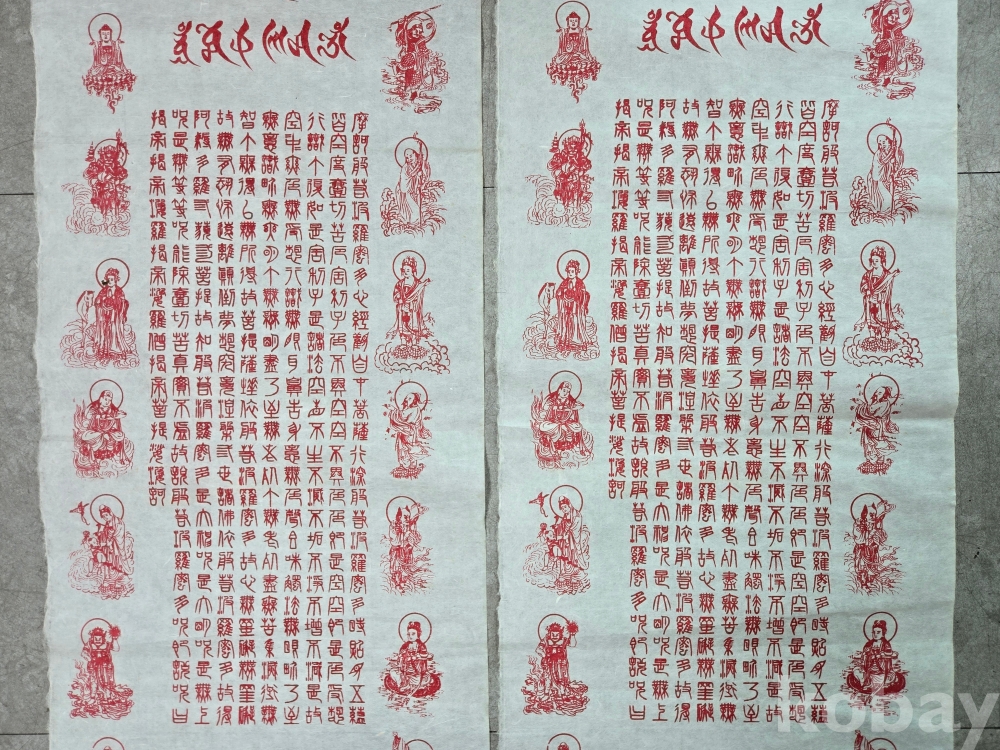 摩訶般若波羅密多心經觀自在菩薩行深般若波羅密多時照見五蘊
皆空度壹切苦厄舍利子色不異空空不異色色即是空空即是色受想
行識亦復如是舍利子是諸法空相不生不滅不垢不淨不增不減是故
空中無色無受想行識無眼耳鼻舌身意無色聲香味觸法無眼界乃至
無意識界無無明亦無無明盡乃至無老死亦無老死盡無苦集滅道無
智亦無得以無所得故菩提薩埵依般若波羅密多故心無罣礙無罣礙
故無有恐怖遠離顛倒夢想究竟涅槃三世諸佛依般若波羅密多故得
阿耨多羅三藐三菩提故知般若波羅密多是大神咒是大明咒是無上
咒是無等等咒能除壹切苦真實不虛故說般若波羅密多咒即說咒曰
揭帝揭帝波羅揭帝波羅僧揭帝菩提娑婆訶
摩訶般若波羅密多心經觀自在菩薩行深般若波羅密多時照見五蘊
皆空度壹切苦厄舍利子色不異空空不異色色即是空空即是色受想
行識亦復如是舍利子是諸法空相不生不滅不垢不淨不增不減是故
空中無色無受想行識無眼耳鼻舌身意無色聲香味觸法無眼界乃至
無意識界無無明亦無無明盡乃至無老死亦無老死盡無苦集滅道無
智亦無得以無所得故菩提薩埵依般若波羅密多故心無罣礙無罣礙
故無有恐怖遠離顛倒夢想究竟涅槃三世諸佛依般若波羅密多故得
阿耨多羅三藐三菩提故知般若波羅密多是大神咒是大明咒是無上
咒是無等等咒能除壹切苦真實不虛故說般若波羅密多咒即說咒曰
揭帝揭帝波羅揭帝波羅僧揭帝菩提娑婆訶
Kobay